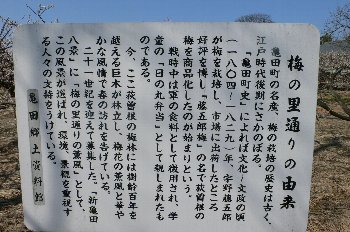 梅の里通りの由来
亀田町の名産、梅の栽培の歴史は古く、
江戸時代後期にさかのぼる。
「亀田町史」によれば文化・文政の頃
(一八〇四―一八二九)年、宇野藤五郎
が梅を栽培し、市場に出荷したところ
好評を博し、「藤五郎梅」の名で荻曽根の
梅を商品化したのが始まりという。
戦時中は軍の食料として使用され、学
童の「日の丸弁当」として親しまれたも
のである。
今、ここ荻曽根の梅林には樹齢百年を
越える巨木が林立し、梅花の薫風と華や
かな風情で春の訪れを告げている。
二十一世紀を迎えて募集した「新亀田
八景」に「梅の里の薫風」として、
この風景が選ばれ、環境、景観を重視す
る人々の支持をうけている。
亀田郷土資料館